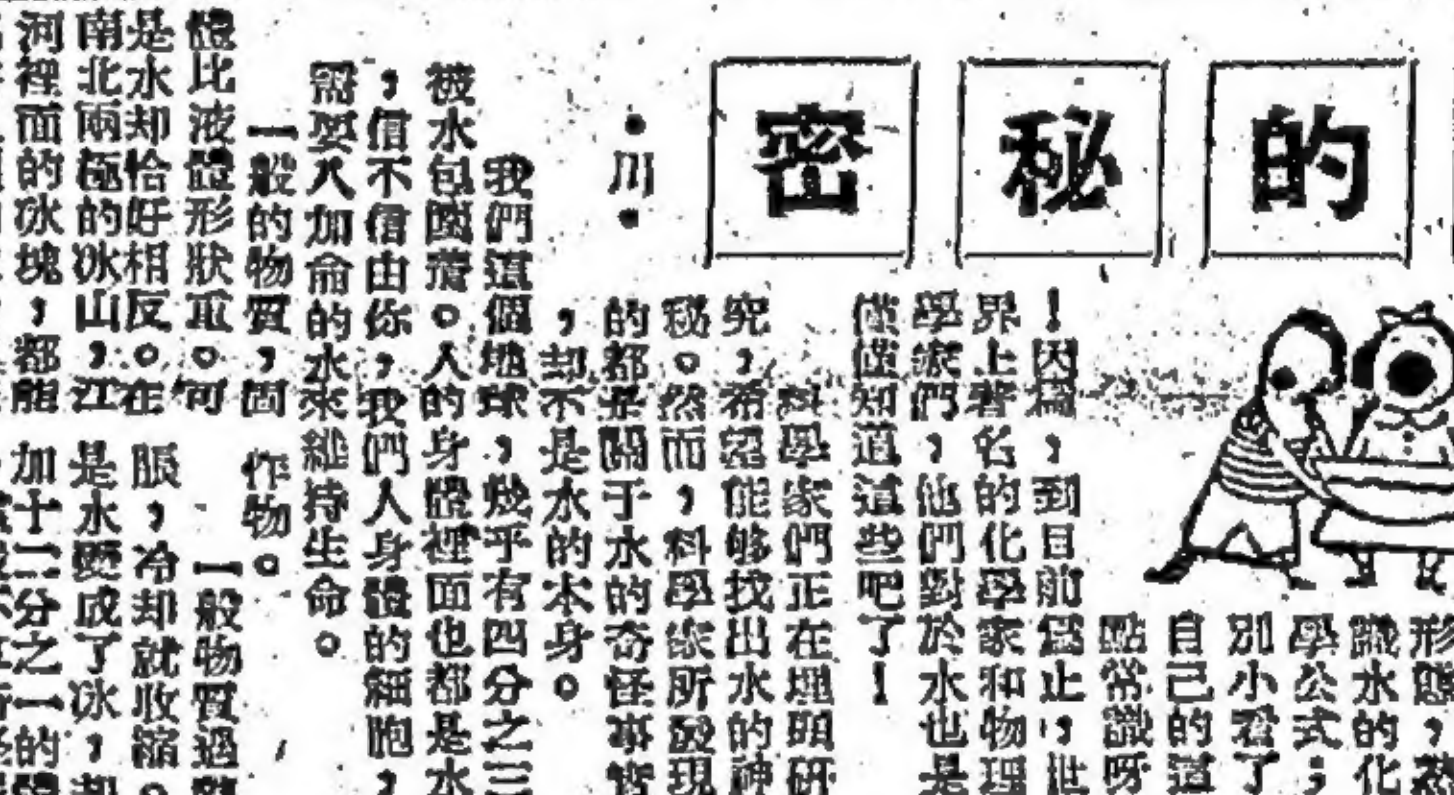 的秘密
·川·
形態，
識水的化
學公式；
別小看了
自己的道
點常識呀
！因為，到目前為止，世
界上著名的化學家和物理
學家們，他們對於水也是
僅僅知道這些吧了！
科學家們正在埋頭研
究，希望能夠找出水的神
秘。然而，科學家所發現
的都是關于水的奇怪事實
，却不是水的本身。
我們這個地球，幾乎有四分之三
被水包圍著。人的身體裡面也都是水
，信不信由你，我們人身體的細胞，
需要八加侖的水來維持生命。
一般的物質，固
體比液體形狀重。可
是水却恰好相反。在
南北兩極的冰山，江
河裡面的冰塊，都能
作物。
一般物質遇熱
脹，冷却就收縮。
是水變成了冰，却
加十二分之一的體